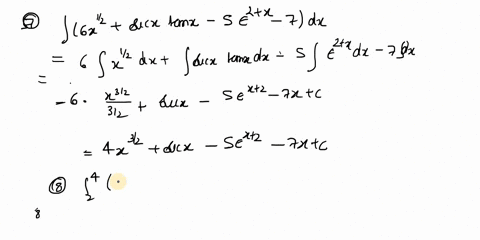 ⑦ ∫(6x^{1/2} + secx tanx - 5e^{2+x} - 7) dx
= 6 ∫ x^{1/2} dx + ∫ secx tanx dx - 5 ∫ e^{2+x} dx - 7∫dx
=
- 6 · x^{3/2}/3/2 + secx - 5e^{x+2} - 7x + c
= 4x^{3/2} + secx - 5e^{x+2} - 7x + c
⑧ ∫_2^4 (
8